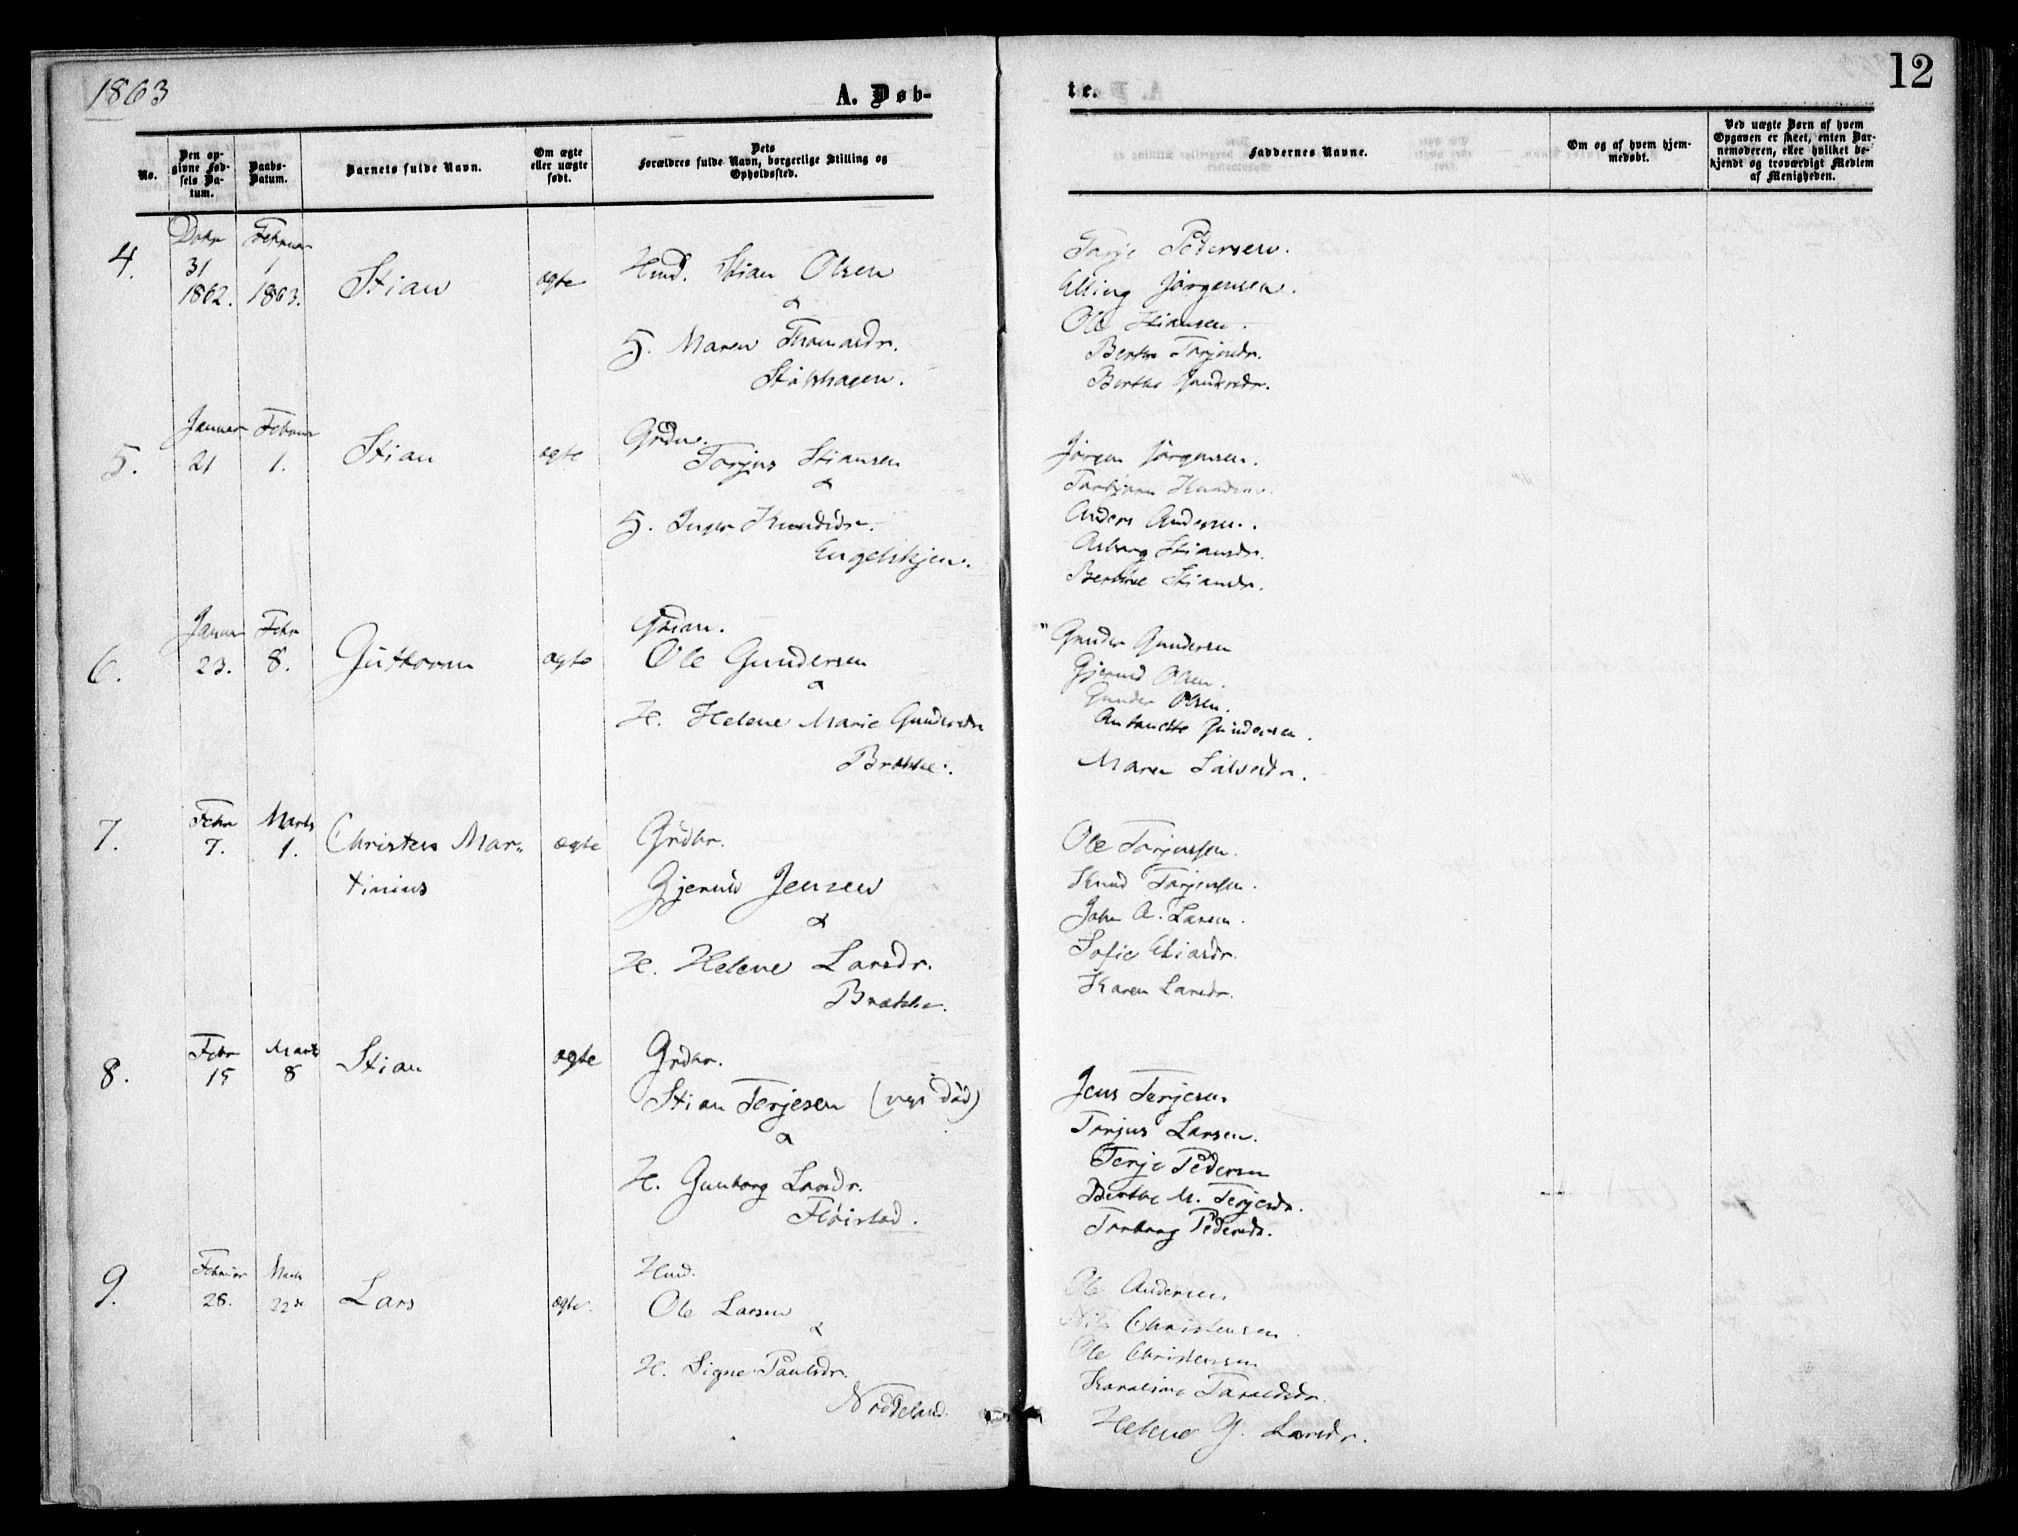 1863
A. Døb-
te.
12
No.
Den op-
givne Fød-
sels Da-
tum.
Daabs-
Datum.
Barnets fulde Navn.
Om ægte
eller uægte
født.
Dets
Forældres fulde Navn, borgerlige Stilling og
Opholdssted.
Faddernes Navne.
Om og af hvem hjem-
medøbt.
Ved uægte Børn af hvem
Opgaven er skeet, enten Bar-
nemoderen, eller hvilket be-
kjendt og troværdigt Medlem
af Menigheden.
4.
Dcbr
31
1862.
Februar
1
1863.
Stian
ægte
Hmd. Stian Olsen
&
H. Maren Thomasdr.
Terje Pedersen.
Elling Jørgensen.
Ole Stiansen.
Berthe Torjusdr.
Berthe Gundersdr.
5.
Januar
21
Februar
1.
Stian
ægte
Grdbr.
Torjus Stiansen
&
H. Inger Knudsdr.
Engelskjøn.
Jørgen Jørgensen.
Torbjørn Knudsen.
Anders Andersen.
Asborg Stiansdr.
Berthe Stiansdr.
6.
Januar
23.
Febr
8.
Guttorm
ægte
Ole Gundersen
&
H. Helene Marie Gundersdr
Brække.
Gunder Gundersen
Gjerulf Olsen.
Gunder Olsen.
Antonette Gundersen.
Maren Salvesdr.
7.
Febr
7.
Marts
1.
Christen Mar-
tinius
ægte
Grdbr.
Gjerulv Jensen
&
H. Helene Larsdr.
Brække.
Ole Torjussen.
Knud Torjussen.
John A. Larsen.
Sofie Eliasdr.
Karen Larsdr.
8.
Febr
15
Marts
8
Stian
ægte
Grdbr.
Stian Terjesen (nys død)
&
H. Gunborg Larsdr.
Fløistad.
Jens Terjesen
Torjus Larsen.
Terje Pedersen
Berthe M. Terjesdr.
Torborg Pedersdr.
9.
Februar
28.
Marts
22de
Lars
ægte.
Hmd.
Ole Larsen
&
H. Signe Paulsdr.
Nødeland.
Ole Andersen
Nils Christensen.
Ole Christensen
Karoline Taraldsdr.
Helene G. Larsdr.